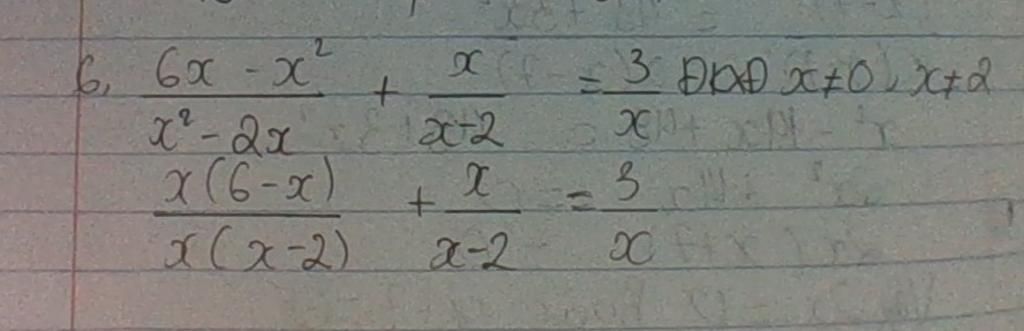 6, (6x - x²)/(x² - 2x) + x/(x-2) = 3/x ĐKXĐ x≠0, x≠2
x(6-x)/x(x-2) + x/(x-2) = 3/x